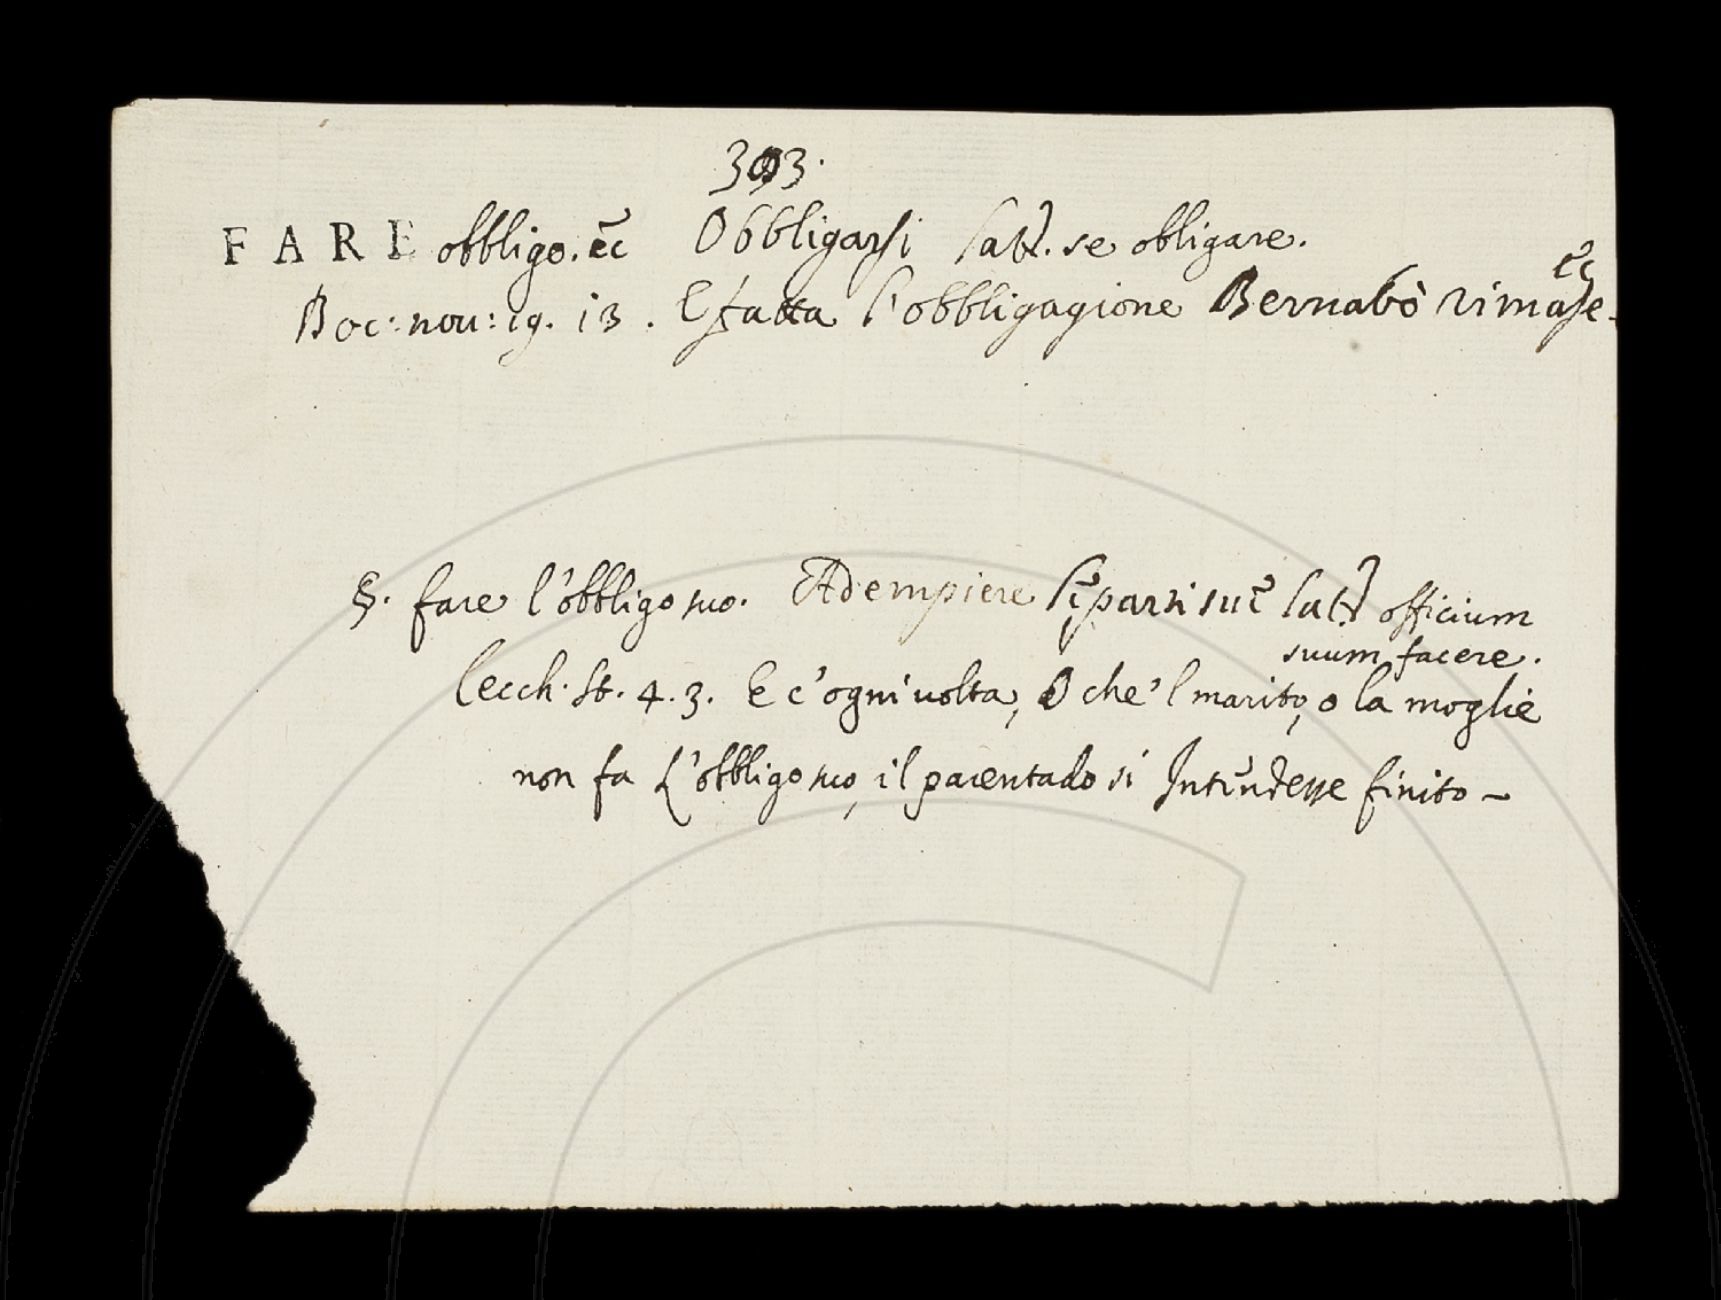 393.
FARE obbligo. ec̃ Obbligarsi Lat. se obligare.
Boc: nou: 19. 13. E fatta l'obbligagione Bernabò rimase. ec̃
§. fare l'obbligo suo. Adempiere le parti sue Lat. officium
suum facere.
Cecch. St. 4. 3. E c'ogni uolta, O che'l marito, o la moglie
non fa L'obbligo suo, il parentado si Intendesse finito –